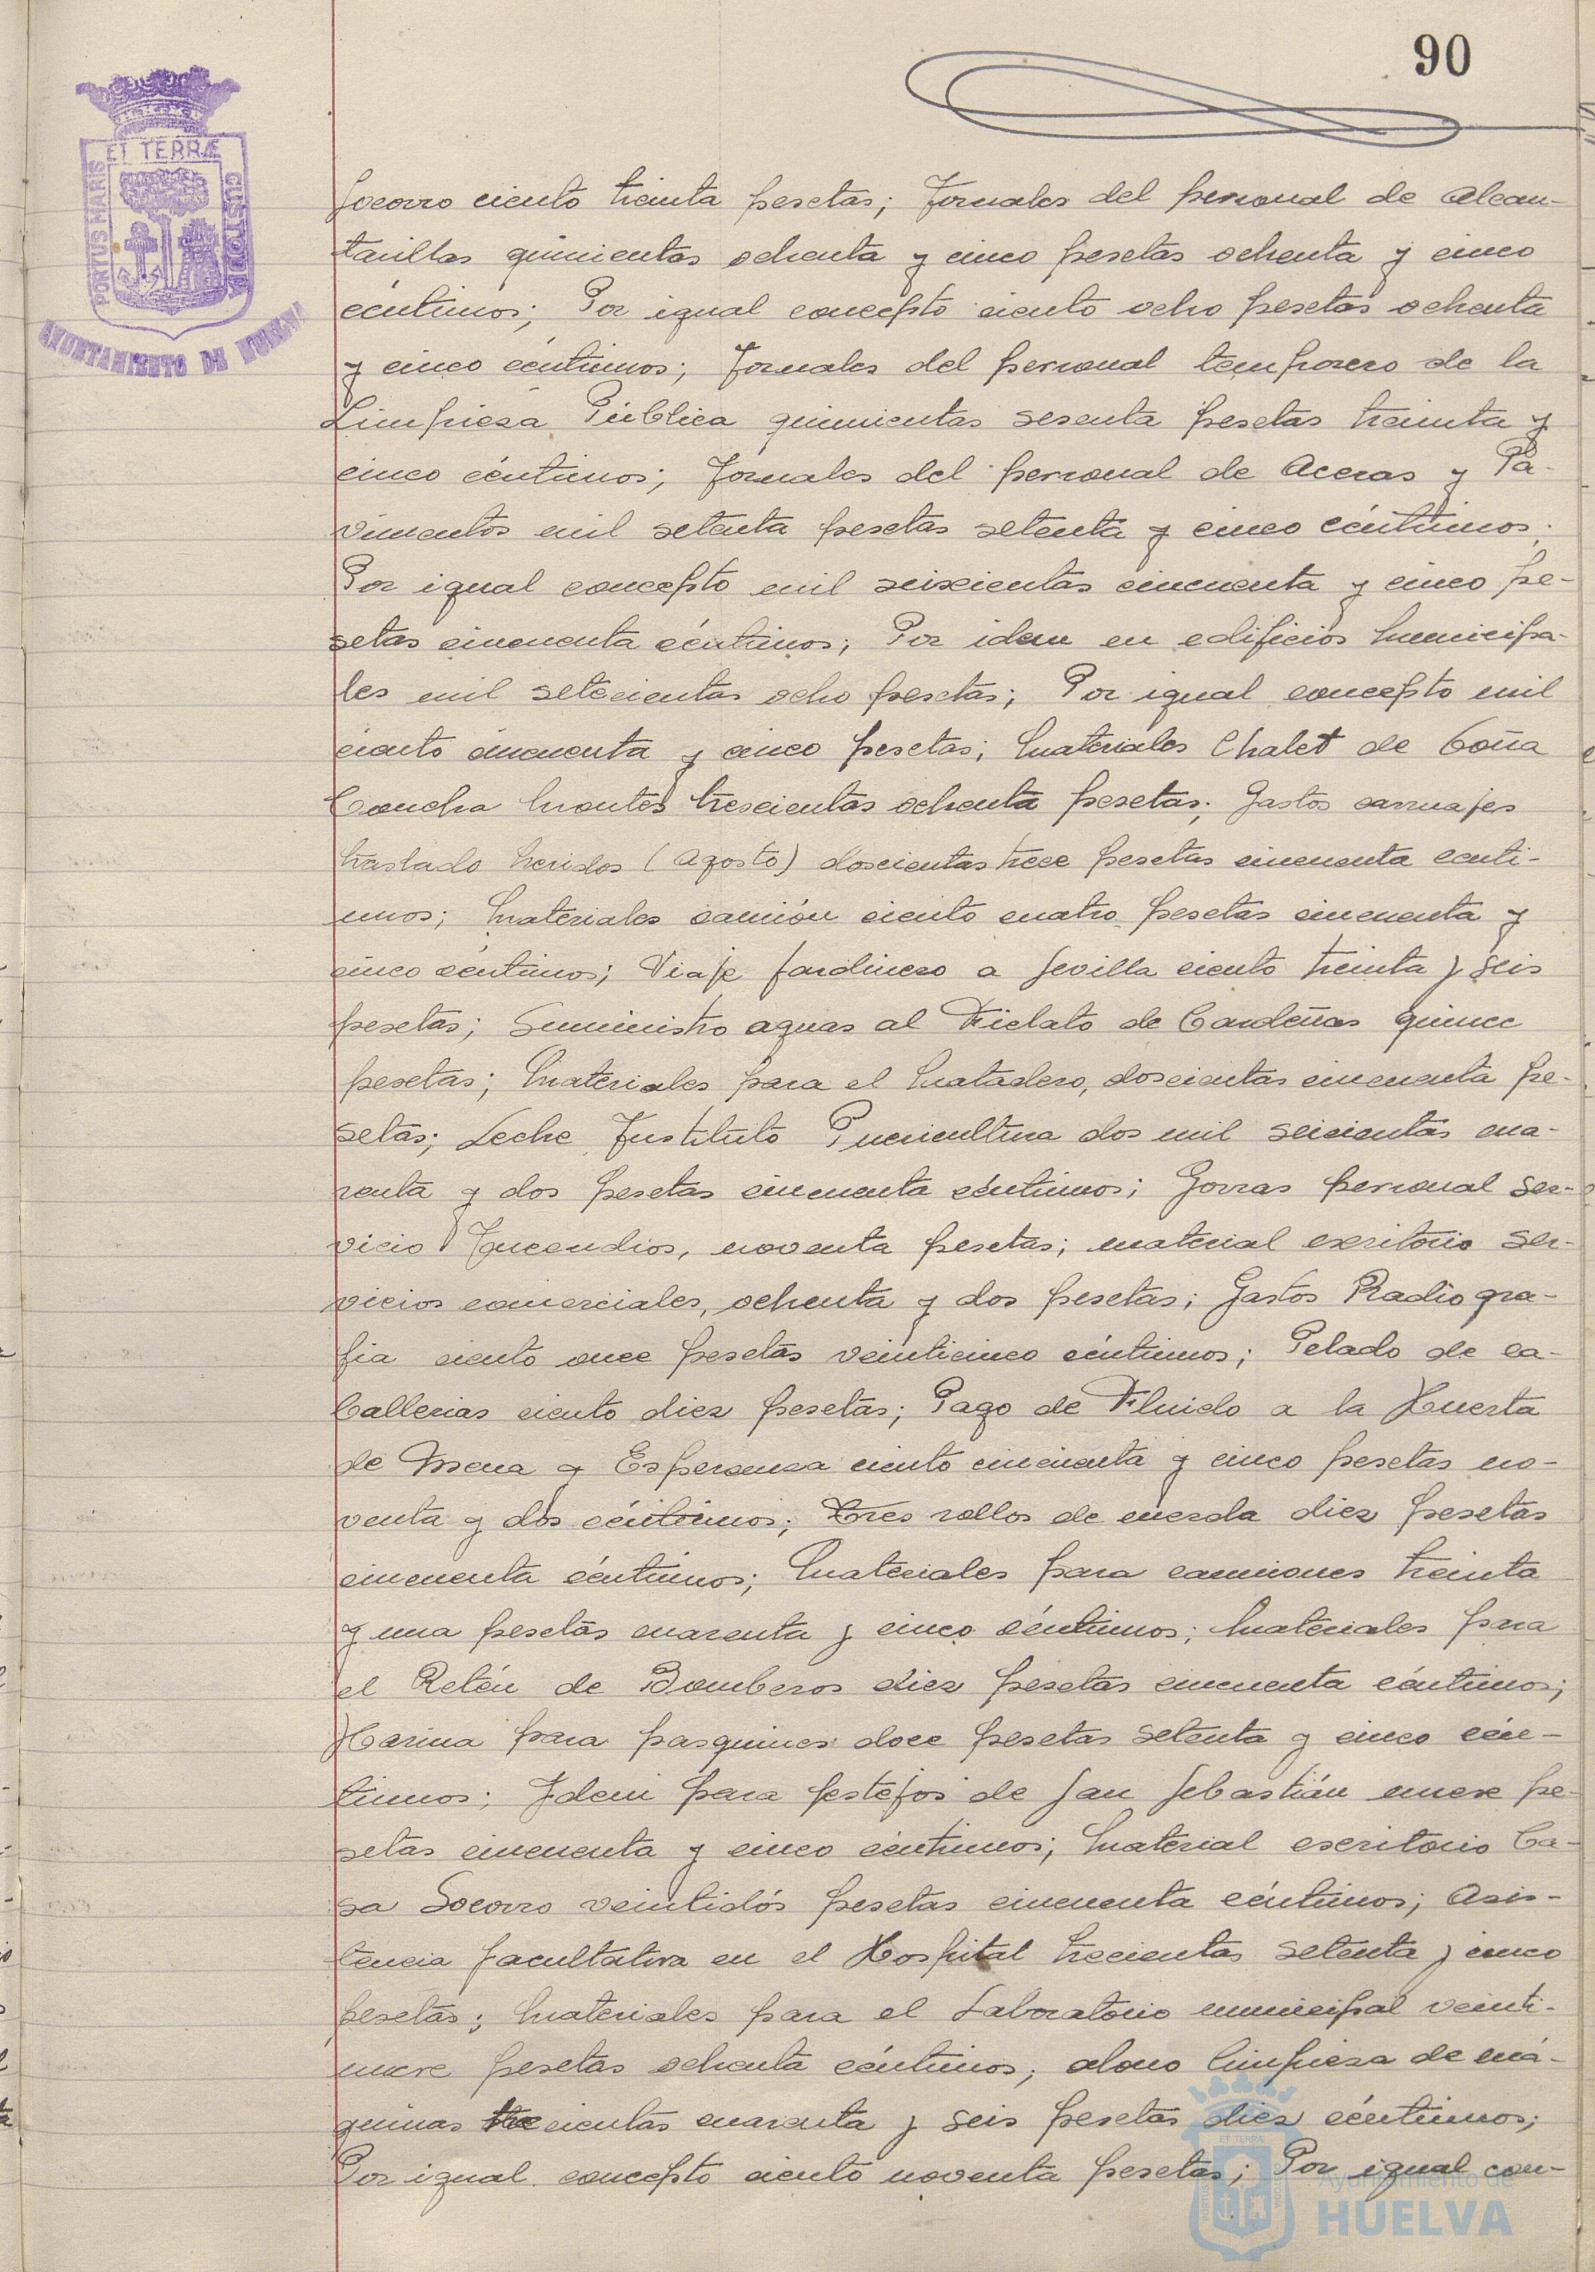 90
ET TERRÆ
PORTUS MARIS
CUSTODIA
AYUNTAMIENTO DE HUELVA
Socorro ciento treinta pesetas; Jornales del personal de Alcan-
tarillas quinientas ochenta y cinco pesetas ochenta y cinco
céntimos; Por igual concepto ciento ocho pesetas ochenta
y cinco céntimos; Jornales del personal temporero de la
Limpieza Pública quinientas sesenta pesetas treinta y
cinco céntimos; Jornales del personal de Aceras y Pa-
vimentos mil setenta pesetas setenta y cinco céntimos;
Por igual concepto mil seiscientas cincuenta y cinco pe-
setas cincuenta céntimos; Por idem en edificios Municipa-
les mil setecientas ocho pesetas; Por igual concepto mil
ciento cincuenta y cinco pesetas; Materiales Chalet de Doña
Concha Montes trescientas ochenta pesetas; Gastos carruajes
traslado heridos (Agosto) doscientas trece pesetas cincuenta centi-
mos; Materiales camión ciento cuatro pesetas cincuenta y
cinco céntimos; Viaje Jardinero a Sevilla ciento treinta y seis
pesetas; Suministro aguas al Fielato de Cardeñas quince
pesetas; Materiales para el Matadero, doscientas cincuenta pe-
setas; Leche Instituto Puericultura dos mil seicientas cua-
renta y dos pesetas cincuenta céntimos; Gorras personal Ser-
vicio Incendios, noventa pesetas; material escritorio Ser-
vicios comerciales, ochenta y dos pesetas; Gastos Radiogra-
fia ciento once pesetas veinticinco céntimos; Pelado de ca-
ballerias ciento diez pesetas; Pago de Fluido a la Huerta
de Mena y Esperanza ciento cincuenta y cinco pesetas no-
venta y dos céntimos; Tres rollos de cuerda diez pesetas
cincuenta céntimos; Materiales para camiones treinta
y una pesetas cuarenta y cinco céntimos; Materiales para
el Retén de Bomberos diez pesetas cincuenta céntimos;
Harina para pasquines doce pesetas setenta y cinco cén-
timos; Idem para festejos de San Sebastián nueve pe-
setas cincuenta y cinco céntimos; Material escritorio Ca-
sa Socorro veintidós pesetas cincuenta céntimos; Asis-
tencia facultativa en el Hospital trecientas setenta y cinco
pesetas; Materiales para el Laboratorio municipal veinti-
nueve pesetas ochenta céntimos; abono limpieza de má-
quinas trecientas cuarenta y seis pesetas diez céntimos;
Por igual concepto ciento noventa pesetas; Por igual con-
Ayuntamiento de
HUELVA